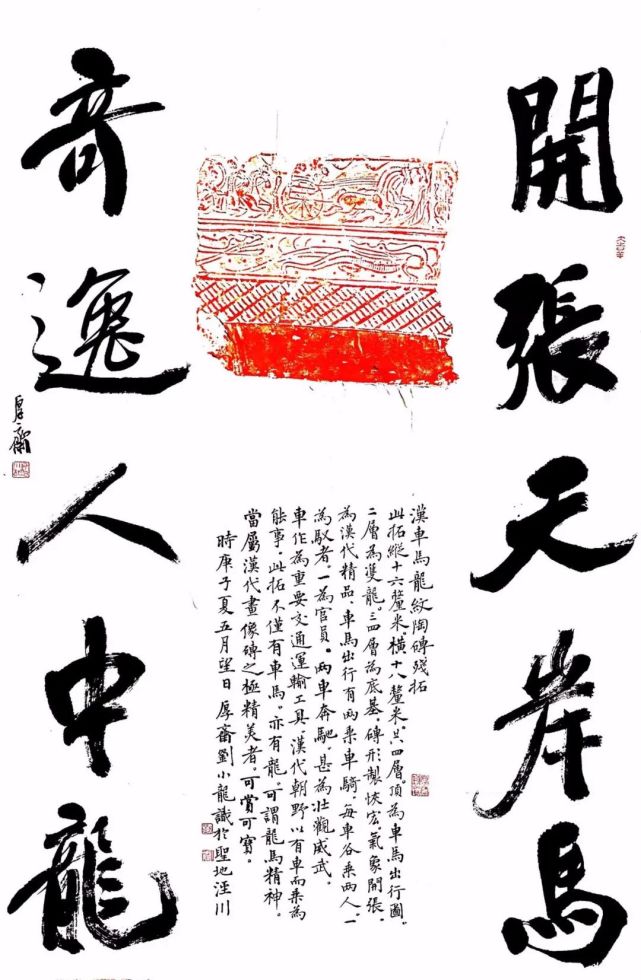 開張天岸馬
漢車馬龍紋陶磚殘拓
此拓縱十六釐米橫十八釐米共四層頂為車馬出行圖。
二層為雙龍。三四層為底基磚形製恢宏。氣象開張。
為漢代精品。車馬出行有兩乘車騎。每車各乘兩人。一
為馭者。一為官員。兩車奔馳。甚為壯觀威武。
車作為重要交通運輸工具。漢代朝野以有車而乘為
能事。此拓不僅有車馬。亦有龍。可謂龍馬精神。
當屬漢代畫像磚之極精美者。可賞可寶。
時庚子夏五月望日厚齋劉小龍識於聖地涇川
竒逸人中龍
厚齋